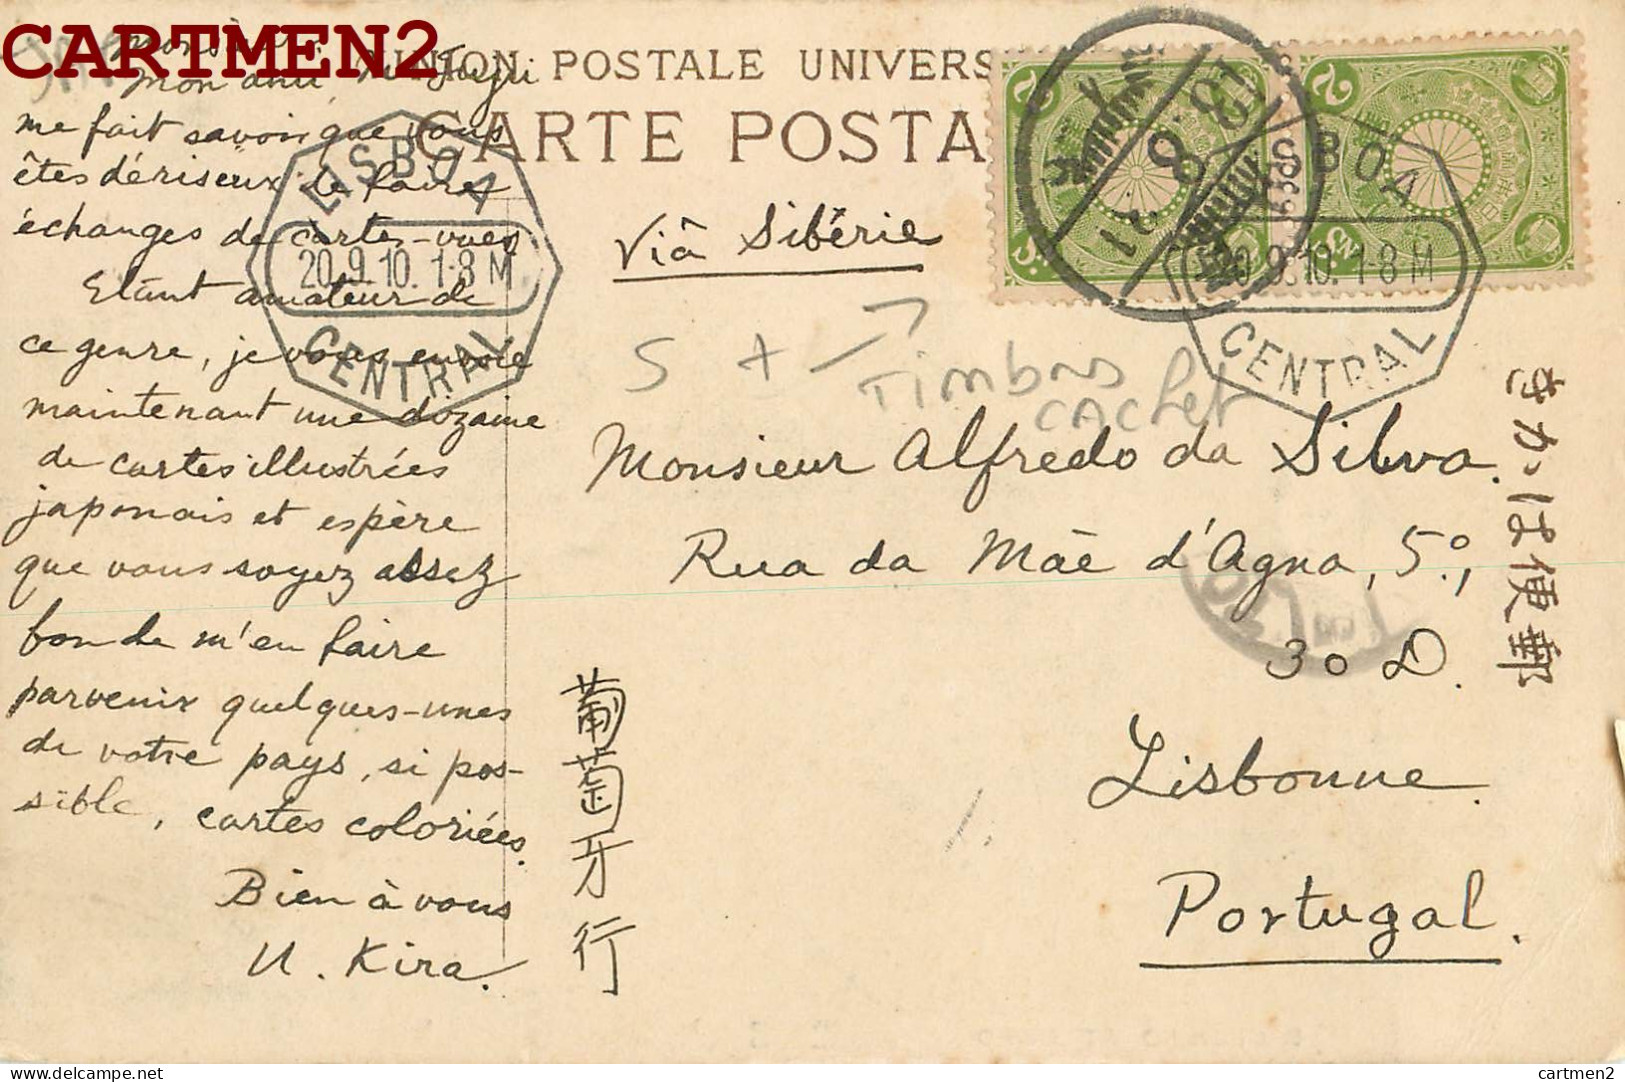 CARTMEN2
UNION POSTALE UNIVERS
CARTE POSTA
Monsieur.
Mon ami Mr Fujii
me fait savoir que vous
êtes dériseux de faire
échanges de cartes-vues
Etant amateur de
ce genre, je vous envoie
maintenant une dozame
de cartes illustrées
japonais et espère
que vous soyez assez
bon de m'en faire
parvenir quelques-unes
de votre pays, si pos-
sible, cartes coloriées.
Bien à vous
U. Kira.
Viâ Sibérie
S + → Timbres
CACHet
Monsieur Alfredo da Silva.
Rua da Mãe d'Agua, 5º,
30 D.
Lisbonne.
Portugal.
葡萄牙行
きかは便郵
LISBOA
20.9.10. 1-8 M
CENTRAL
SBOA
20.9.10. 1-8 M
CENTRAL
delcampe.net
cartmen2